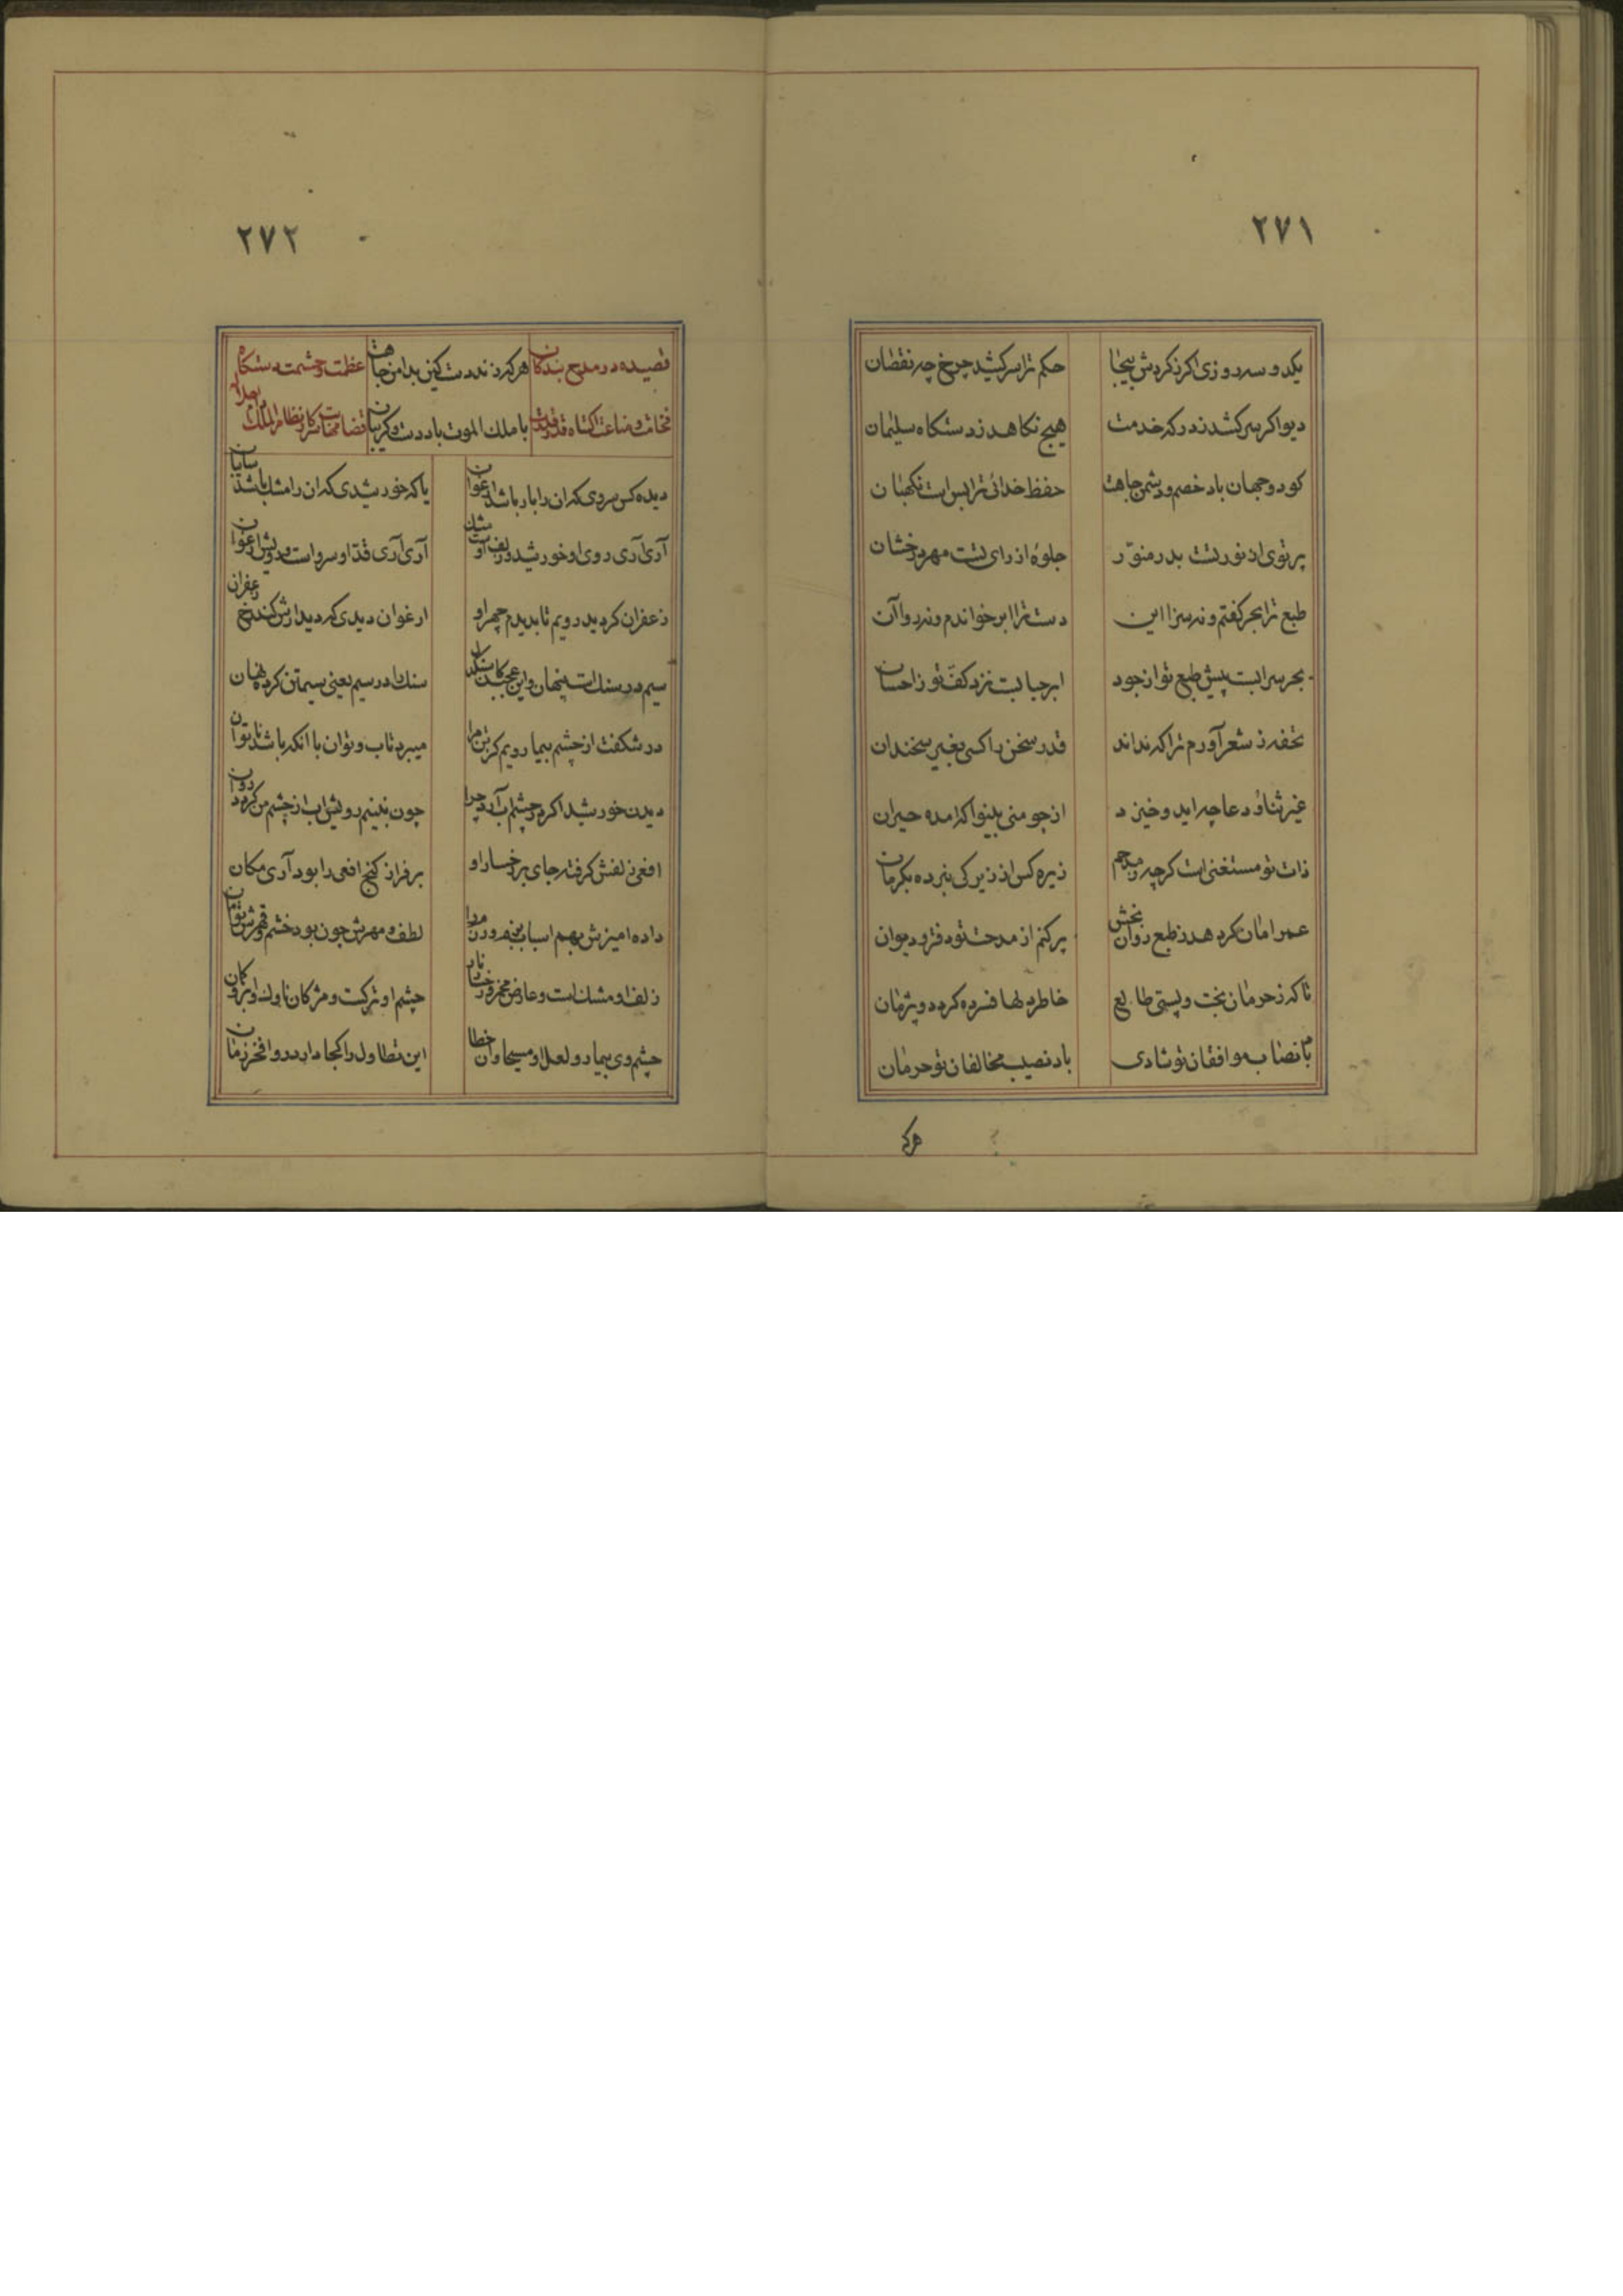 ۲۷۱
یکدو سه روزی اکر ز کردش بیجا
حکم ترا سر کشید چرخ چه نقصان
دیو اکر سر کشد ز درکه خدمت
هیچ نکاهد ز دستکاه سلیمان
کو دو جهان باد خصم و دشمن جاهت
حفظ خدائی ترا بس است نکهبان
پرتوی از نور تست بدر منوّر
جلوهٔ از رای تست مهر درخشان
طبع ترا بحر کفتم و نه سزا این
دست ترا ابر خواندم و نه روا آن
بحر سرابست پیش طبع تو از جود
ابر حبابست نزد کفّ تو ز احسان
تحفه ز شعر آورم ترا که نداند
قدر سخن را کسی بغیر سخندان
غیر ثنا و دعا چه اید و خیزد
از چو منی بینوا که امده حیران
ذات تو مستغنی است کرچه ز مدحم
زیره کس از زیرکی نبرده بکرمان
عمر امان کر دهد ز طبع روان بخش
پر کنم از مدحت تو دفتر و دیوان
تا که ز حرمان بخت و پستی طالع
خاطر دلها فسرده کردد و پژمان
باد نصاب موافقان تو شادی
باد نصیب مخالفان تو حرمان
هرکه
۲۷۲
قصیده در مدح بندکان
هرکه زند دست کین بدامن جاهت
عظمت و حشمت دستکاه
فخامت و مناعت اکتناه قدر قدرت
با ملک الموت باد دست و کریبان
قضا مهابت سرکار نظام الملک
دیده کس سروی که ان را بار باشد ارغوان
یا که خورشیدی که ان را مشک باشد سایبان
آری آری روی او خورشید و زلف اوست مشک
آری آری قدّ او سرو است و رویش ارغوان
زعفران کردید رویم تا بدیدم چهر او
ارغوان دیدی که دیدارش کند رخ زعفران
سیم در سنک است پنهان و این عجب کان سنکدل
سنک را در سیم یعنی سیمتن کرده نهان
در شکفت از چشم بیمار ویم کز تن مرا
میبرد تاب و توان با انکه باشد ناتوان
دیدن خورشید اکر در چشم اب آرد چرا
چون نبینم رویش اب از چشم من کردد روان
افعی زلفش کرفته جای بر رخسار او
بر فراز کنج افعی را بود آری مکان
داده امیزش بهم اسباب
لطف و مهرش چون بود خشم و قهرش توامان
زلف او مشک است و عارض
چشم او ترکست و مژکان ناوک و ابرو کمان
چشم وی بیمار و لعل او مسیحا وان خطا
این تطاول را کجا دارد روا فخر زمان